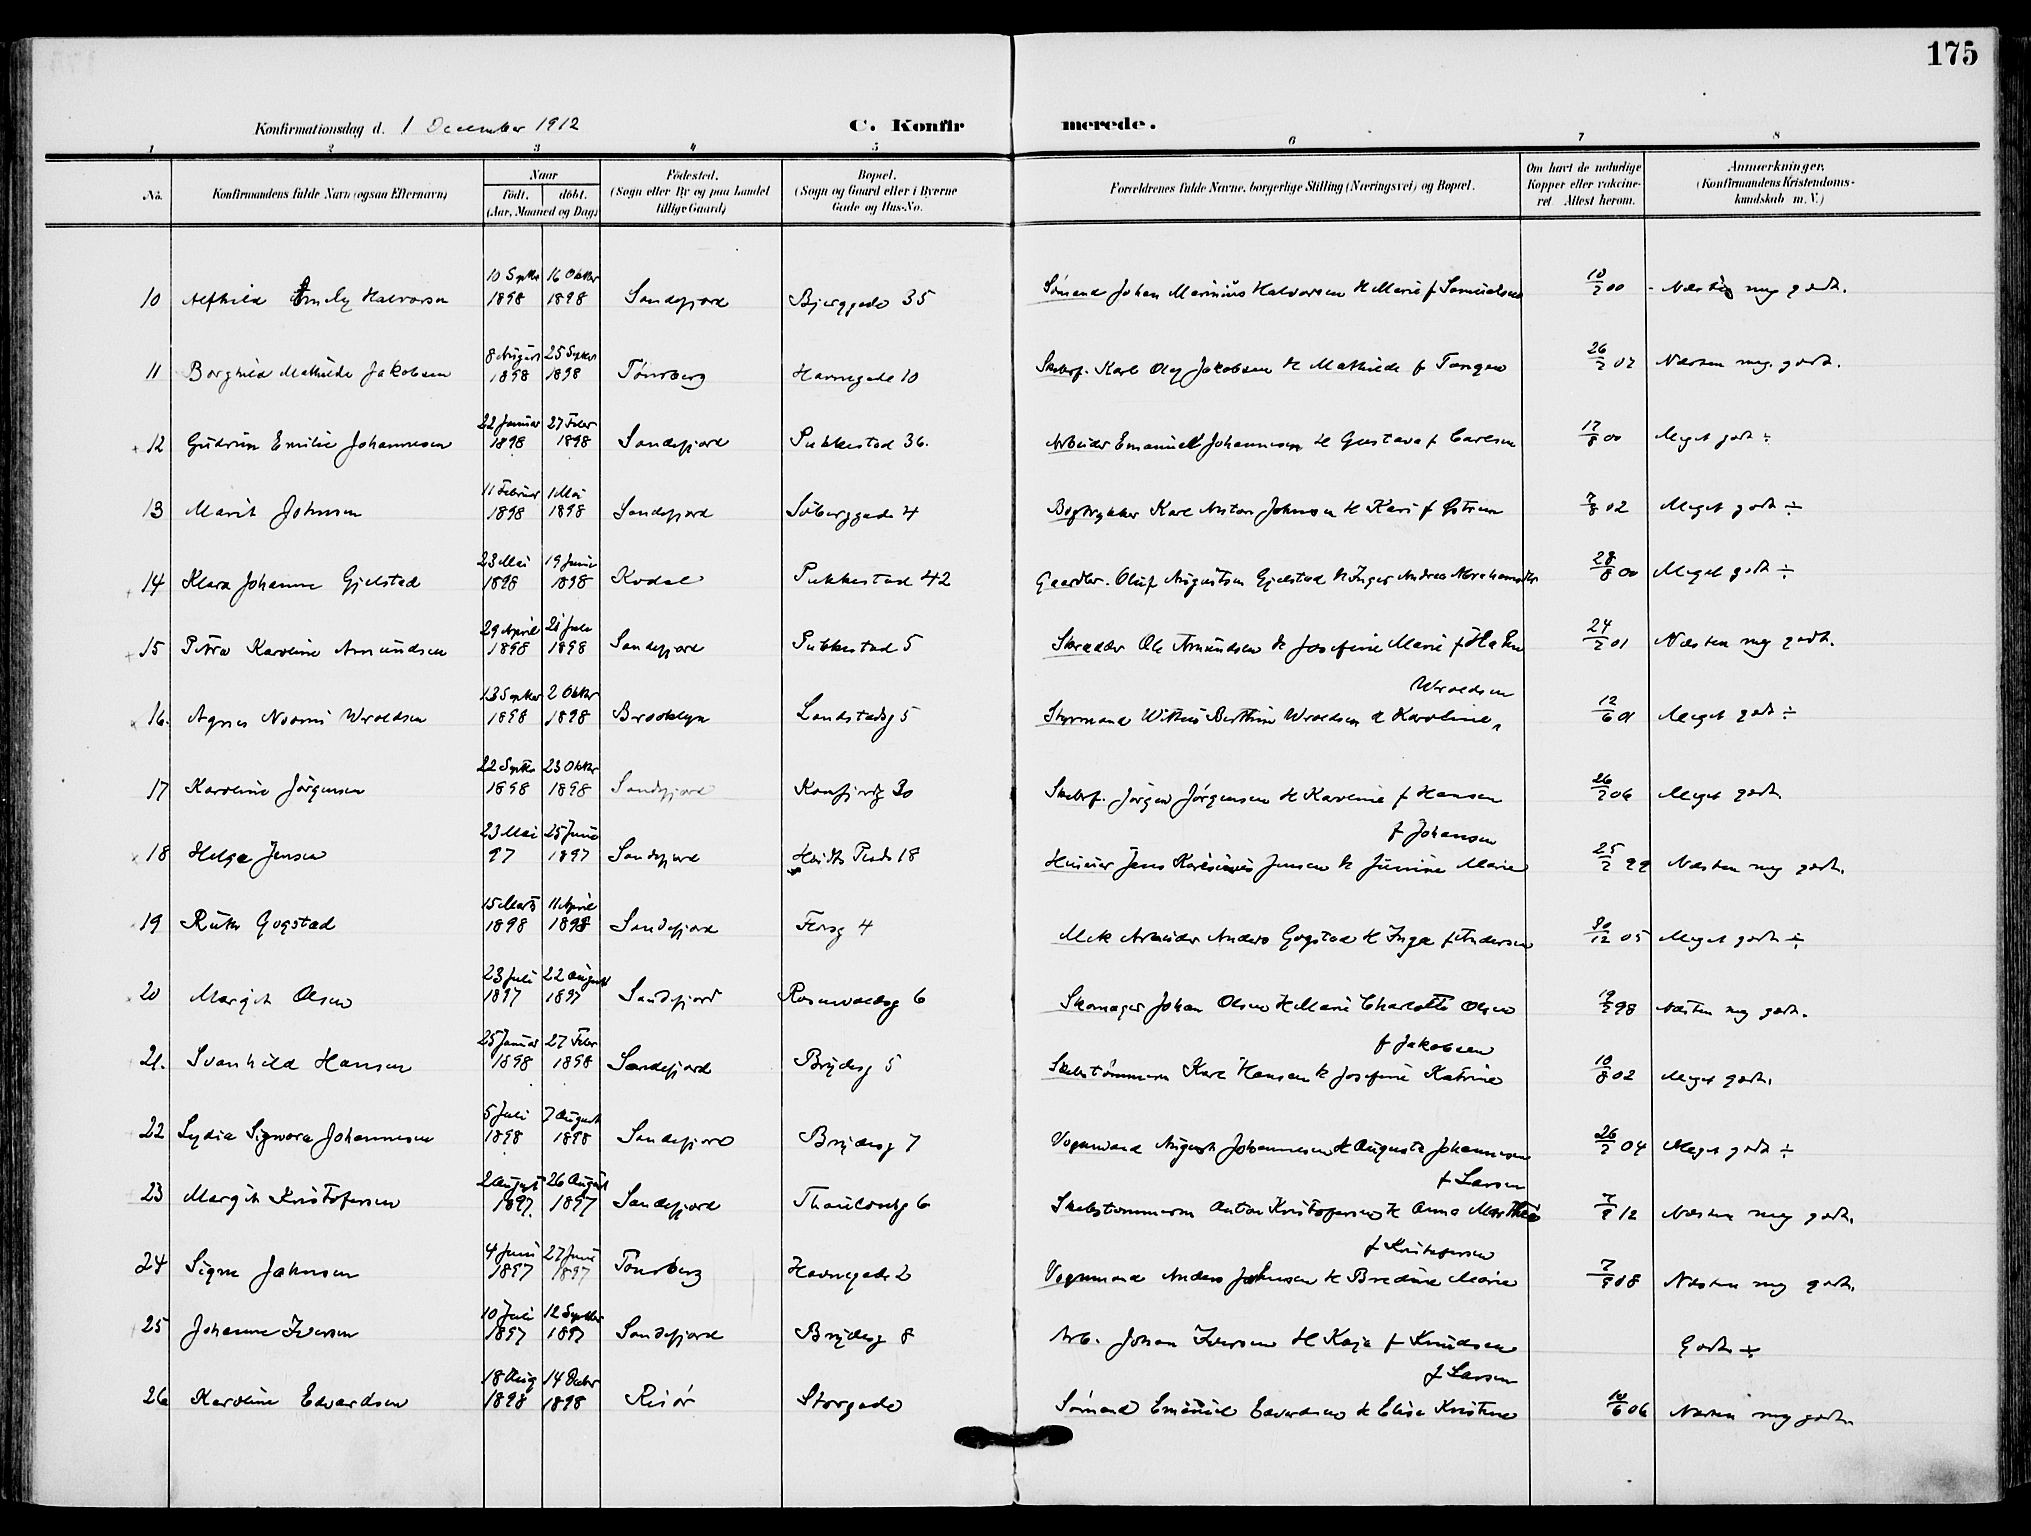 175
Konfirmationsdag d. 1 December 1912
C. Konfirmerede.
1 2 3 4 5 6 7 8
No. Konfirmandens fulde Navn (ogsaa Efternavn) Naar født. døbt. (Aar, Maaned og Dag) Fødested. (Sogn eller By og paa Landet tillige Gaard) Bopæl. (Sogn og Gaard eller i Byerne Gade og Hus-No. Forældrenes fulde Navne, borgerlige Stilling (Næringsvei) og Bopæl. Om havt de naturlige Kopper eller vaccineret Attest herom. Anmærkninger. (Konfirmandens Kristendomskundskab m. V.)
10 Alfhild Emily Halvorsen 10 Septbr 1898 16 Oktbr 1898 Sandefjord Bjerggade 35 Sömand Johan Marinius Halvorsen & Marie f Samuelsen 10/2 00 Næsten meg godt.
11 Borghild Mathilde Jakobsen 8 August 1898 25 Septbr 1898 Tönsberg Havnegade 10 Skibsf. Karl Olaf Jakobsen & Mathilde f Tangen 26/2 02 Næsten meg. godt.
12 Gudrun Emilie Johannesen 22 Januar 1898 27 Febr 1898 Sandefjord Pukkestad 36. Arbeider Emanuel Johannesen & Gustava f Carlsen 17/8 00 Meget godt ÷
13 Marit Johnsen 11 Februar 1898 1 Mai 1898 Sandefjord Söberggade 4 Bogtrykker Karl Anton Johnsen & Kari f Östrem 7/8 02 Meget godt ÷
14 Klara Johanne Gjelstad 23 Mai 1898 19 Juni 1898 Kodal Pukkestad 42 Gaardbr. Oluf Augustsen Gjelstad & Inger Andrea Abrahamsdtr 28/8 00 Meget godt ÷
15 Petra Karoline Amundsen 29 April 1898 21 Juli 1898 Sandefjord Pukkestad 5 Skrædder Ole Amundsen & Josefine Marie f 24/2 01 Næsten meg godt.
16. Agnes Noomi Wroldsen 13 Septbr 1898 2 Oktbr 1898 Brooklyn Landstadsg 5 Styrmand Berthin Wroldsen & Karoline f Wroldsen 12/6 01 Meget godt ÷
17 Karoline Jörgensen 22 Septbr 1898 23 Oktbr 1898 Sandefjord 30 Skibsf. Jörgen Jörgensen & Karoline f Hansen 26/2 06 Meget godt.
18 Helga Jensen 23 Mai 97 25 Juni 1897 Sandefjord Plads 18 Jens Jensen & Marie f Johansen 25/2 99 Næsten meg godt.
19 Ruth Gogstad 15 Marts 1898 11 April 1898 Sandefjord 4 Mek Arbeider Anders Gogstad & Inga f Andersen 30/12 05 Meget godt ÷
20 Margit Olsen 23 Juli 1897 22 August 1897 Sandefjord Rosenvoldsg 6 Skomager Johan Olsen & Marie Charlotte Olsen 19/2 98 Næsten meg godt.
21. Svanhild Hansen 25 Januar 1898 27 Febr 1898 Sandefjord Brydesg 5 Skibstömmerm Karl Hansen & Josefine Katrine f Jakobsen 10/8 02 Meget godt.
22 Lydia Signora Johannesen 5 Juli 1898 7 August 1898 Sandefjord Brydesg 7 Vognmand August Johannesen & Augusta Johannesen 26/2 04 Meget godt ÷
23 Margit Kristofersen 2 August 1897. 26 August 1897 Sandefjord Thaulowsg 6 Skibstömmerm Anton Kristofersen & Anna Marthea f Larsen 7/9 12 Næsten meg godt.
24 Signe Johnsen 4 Juni 1897 27 Juni 1897 Tönsberg Havnegade 2 Vognmand Anders Johnsen & Bredine Marie f Kristofersen 7/9 08 Næsten meg godt.
25 Johanne Iversen 10 Juli 1897 12 Septbr 1897 Sandefjord Brydesg 8 Arb. Johan Iversen & Kaja f Knudsen Godt ÷
26 Karoline Edvardsen 18 Aug 1898 14 1898 Risör Storgade Sömand Emanuel Edvardsen & Elise Kristine f Larsen 10/6 06 Næsten meg godt